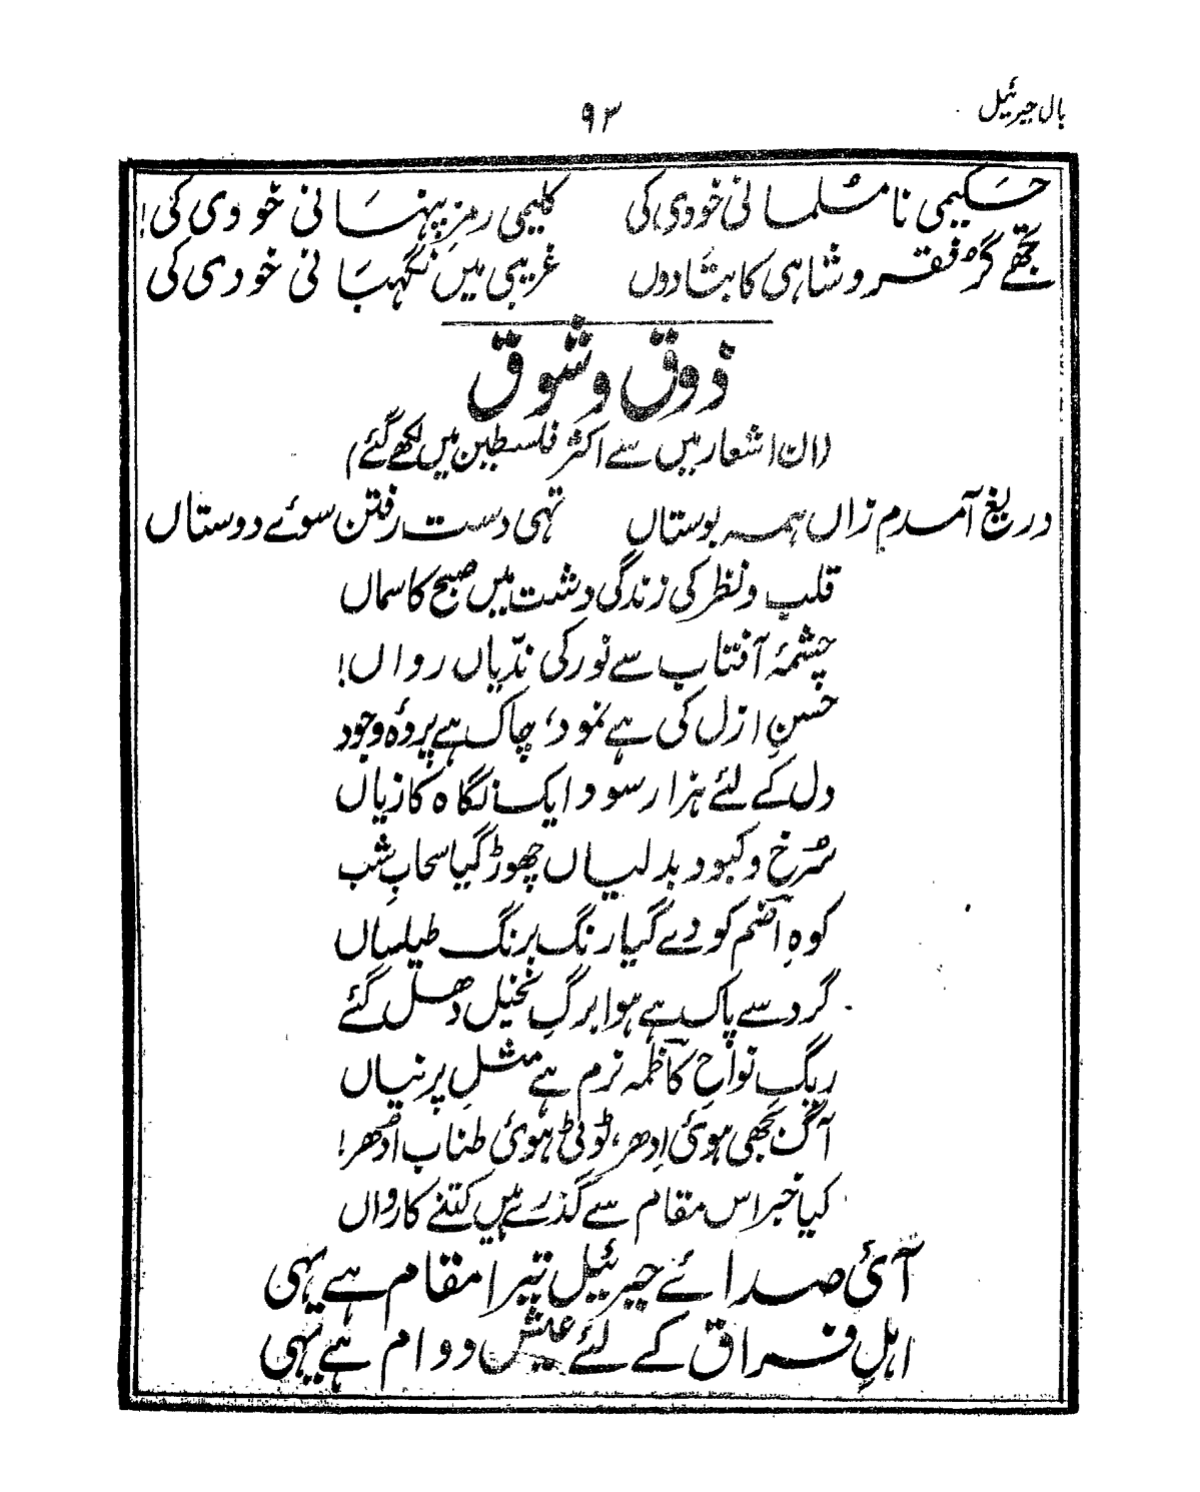 بال جبرئیل
۹۳
حکیمی نامسلمانی خودی کی کلیمی رمزِ پنہانی خودی کی!
تجھے گُر فقر و شاہی کا بتا دوں غریبی میں نگہبانی خودی کی
ذوق و شوق
(ان اشعار میں سے اکثر فلسطین میں لکھے گئے)
دریغ آمدم زاں ہمہ بوستاں تہی دست رفتن سوئے دوستاں
قلب و نظر کی زندگی دشت میں صبح کا سماں
چشمۂ آفتاب سے نور کی ندّیاں رواں!
حسنِ ازل کی ہے نمود، چاک ہے پردۂ وجود
دل کے لئے ہزار سود ایک نگاہ کا زیاں
سُرخ و کبود بدلیاں چھوڑ گیا سحابِ شب
کوہِ اضم کو دے گیا رنگ برنگ طیلساں
گرد سے پاک ہے ہوا برگِ نخیل دھل گئے
ریگِ نواحِ کاظمہ نرم ہے مثلِ پرنیاں
آگ بجھی ہوئی اِدھر، ٹوٹی ہوئی طناب اُدھر!
کیا خبر اس مقام سے گذرے ہیں کتنے کارواں
آئی صدائے جبرئیل تیرا مقام ہے یہی
اہلِ فراق کے لئے عیشِ دوام ہے یہی